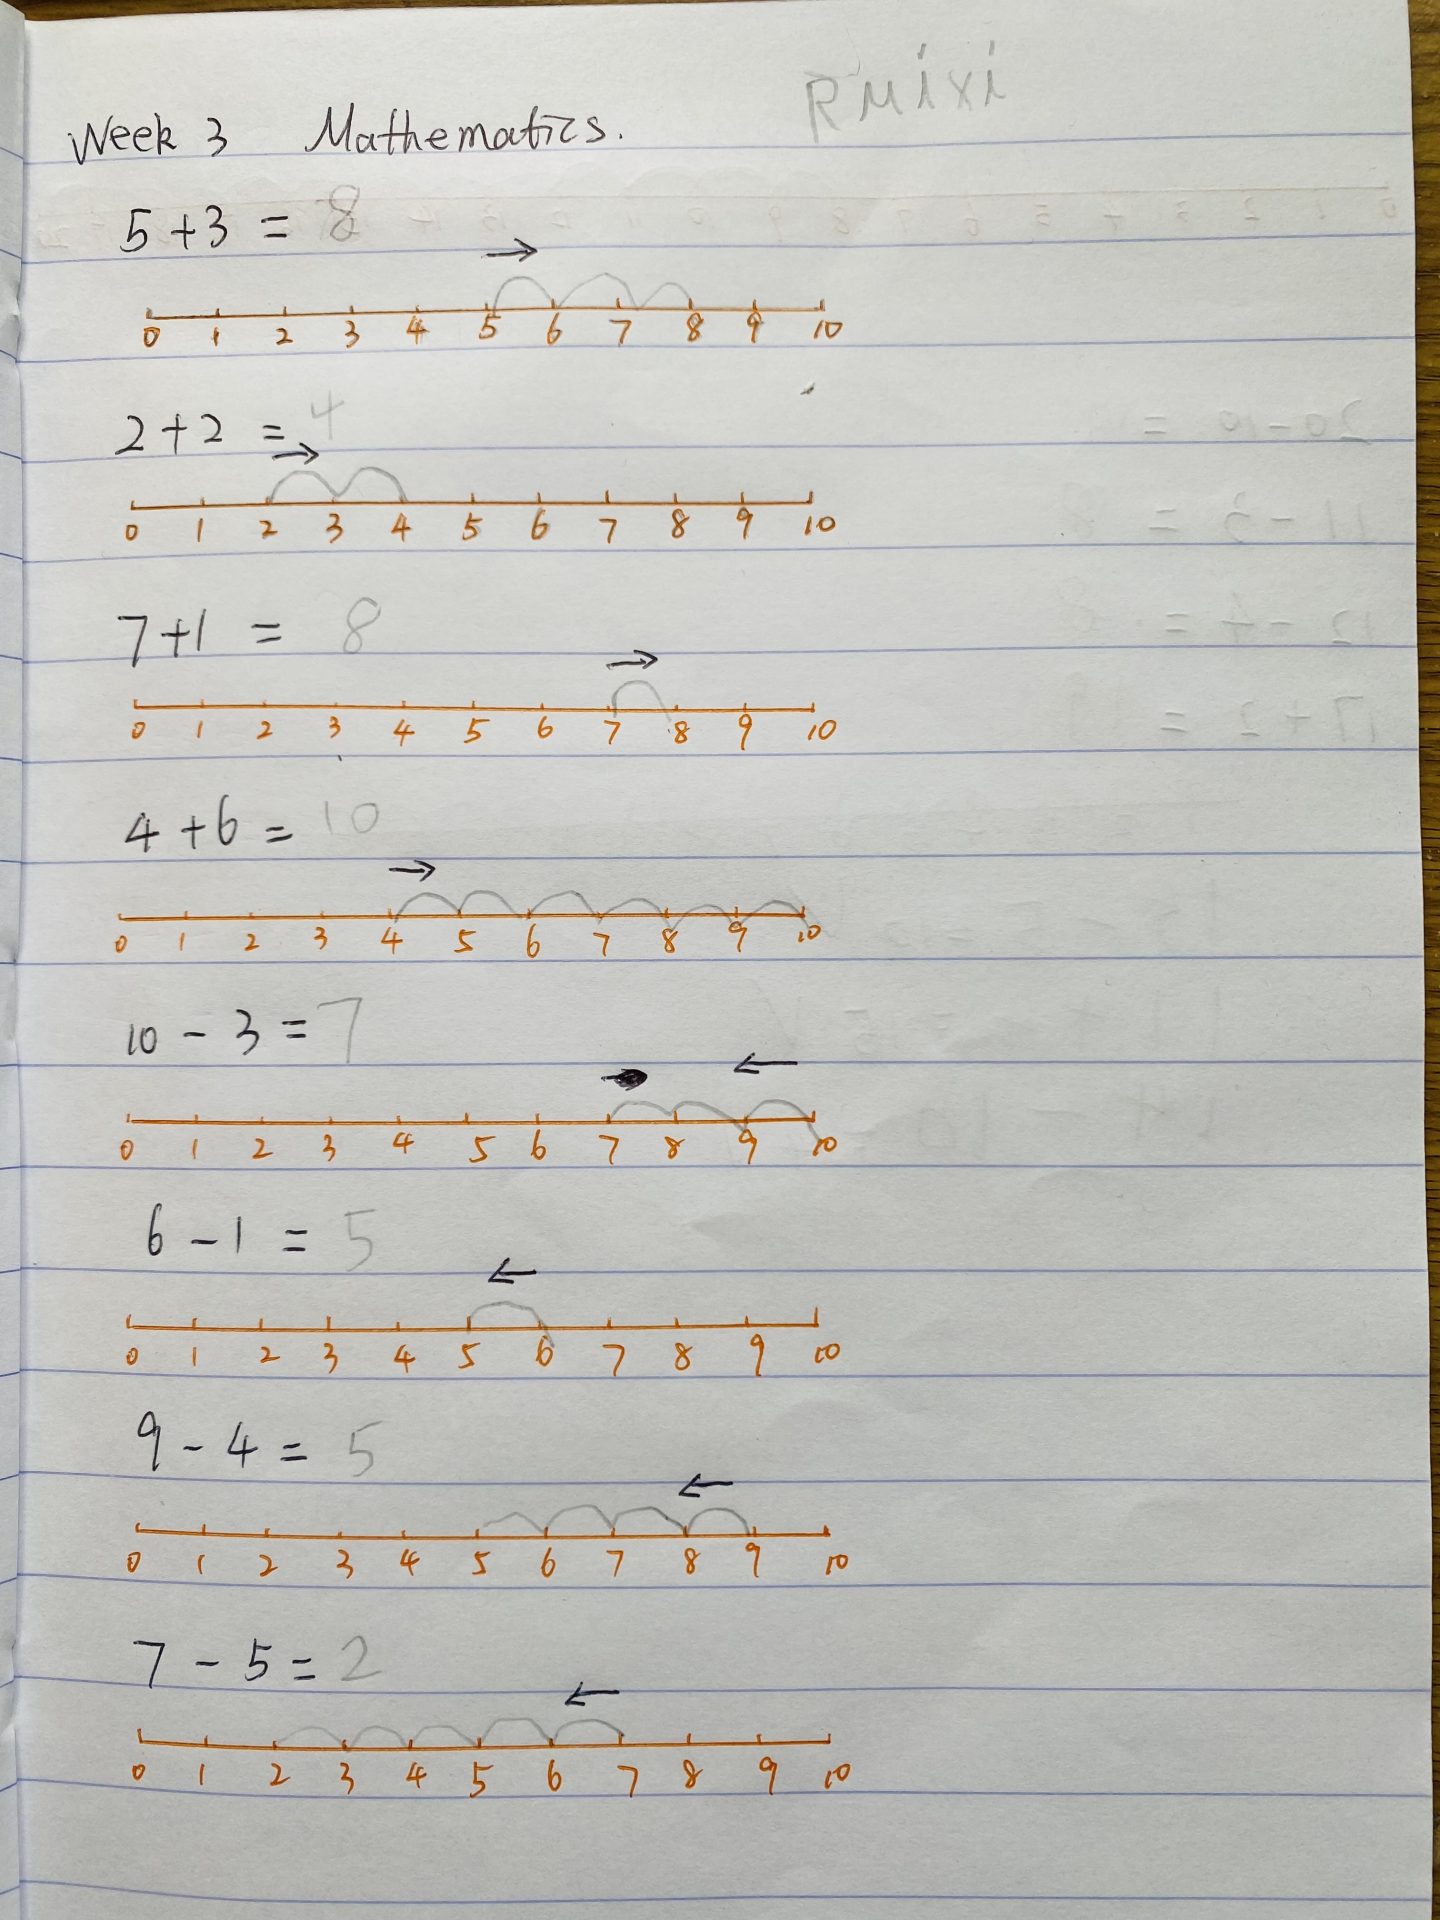 RMixi
Week 3 Mathematics.
5+3 = 8
0 1 2 3 4 5 6 7 8 9 10
2+2 = 4
0 1 2 3 4 5 6 7 8 9 10
7+1 = 8
0 1 2 3 4 5 6 7 8 9 10
4+6 = 10
0 1 2 3 4 5 6 7 8 9 10
10 - 3 = 7
0 1 2 3 4 5 6 7 8 9 10
6 - 1 = 5
0 1 2 3 4 5 6 7 8 9 10
9 - 4 = 5
0 1 2 3 4 5 6 7 8 9 10
7 - 5 = 2
0 1 2 3 4 5 6 7 8 9 10